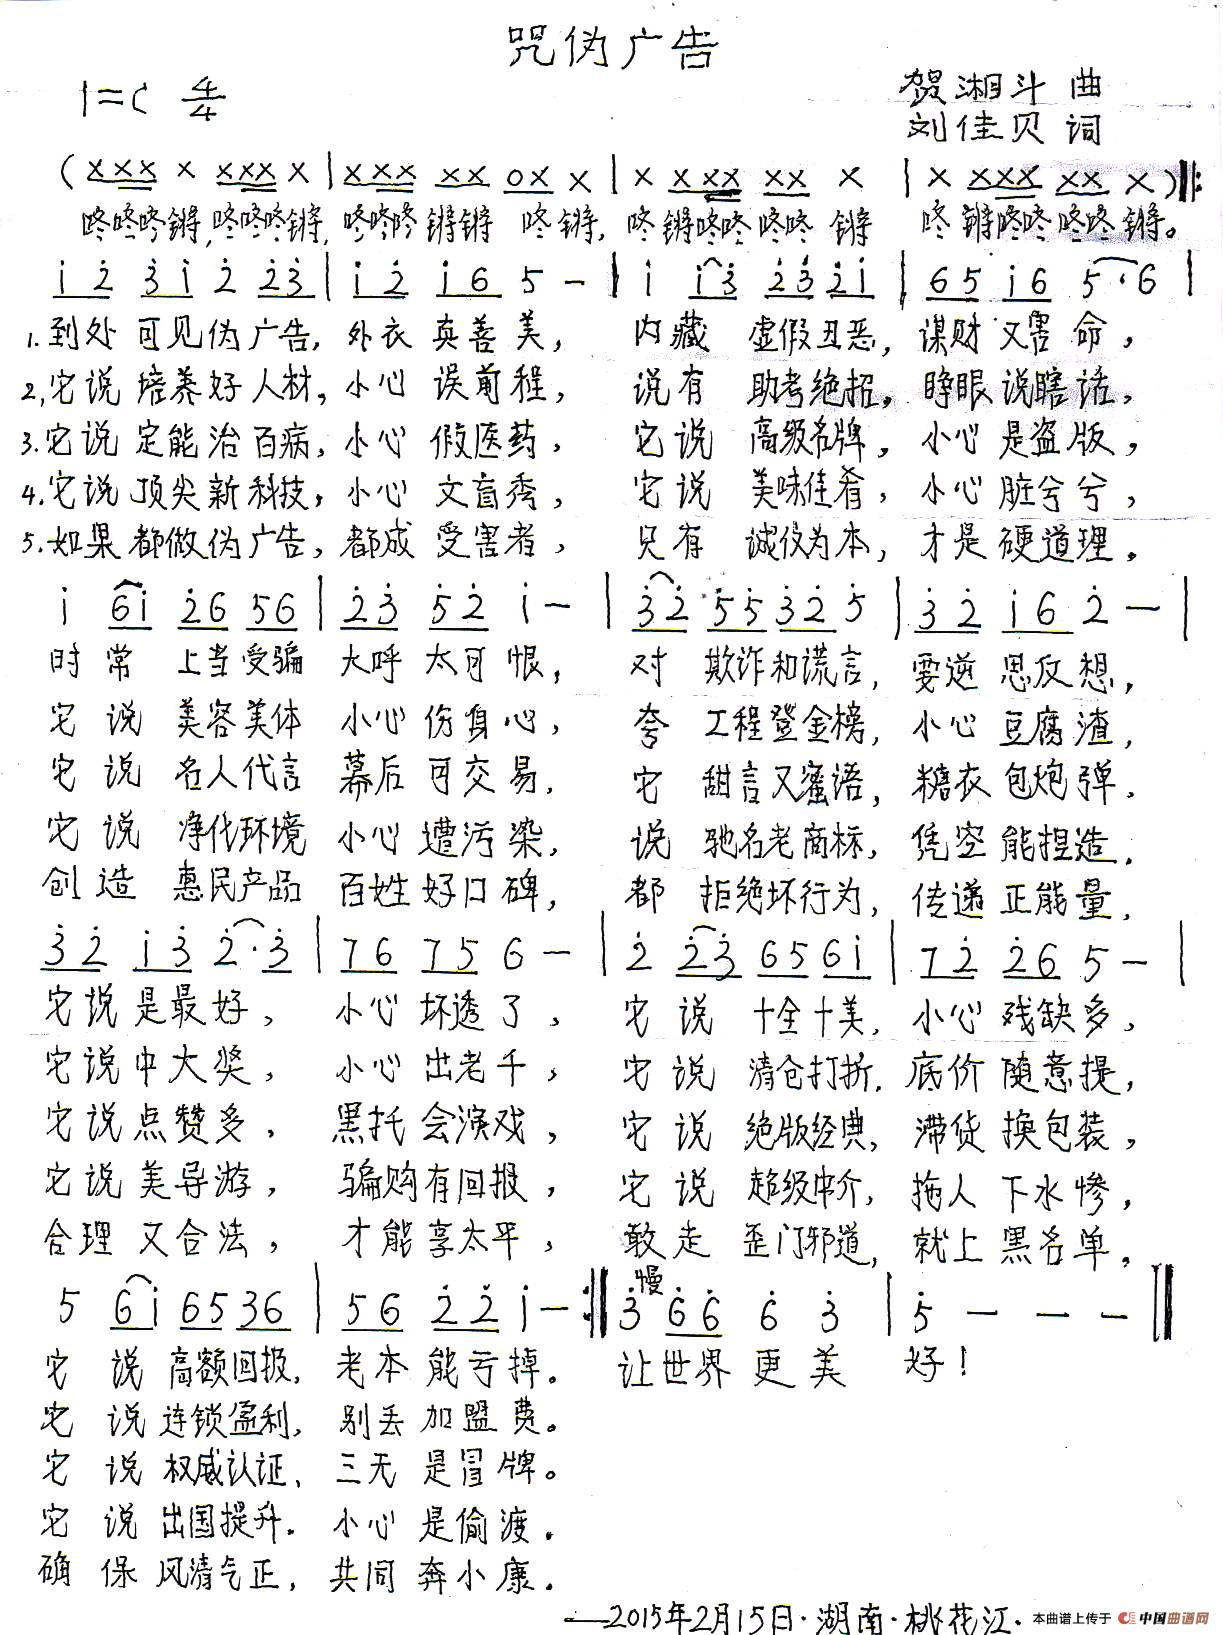 咒伪广告
1=C 4/4
贺湘斗 曲
刘佳贝 词
(XXX X XXX X | XXX XX 0X X | X XXX XX X | X XXX XX X) ‖:
咚咚咚锵,咚咚咚锵, 咚咚咚 锵锵 咚 锵, 咚 锵咚咚 咚咚 锵 咚 锵咚咚 咚咚 锵。
i 2 3 i 2 2 3 | i 2 i 6 5 – | i i 3 2 3 2 i | 6 5 i 6 5 · 6 |
1.到处 可见伪广告, 外衣 真善美, 内藏 虚假丑恶, 谋财 又害命,
2,它说 培养好人材, 小心 误前程, 说有 助考绝招, 睁眼 说瞎话,
3.它说 定能治百病, 小心 假医药, 它说 高级名牌, 小心 是盗版,
4.它说 顶尖新科技, 小心 文盲秀, 它说 美味佳肴, 小心 脏兮兮,
5.如果 都做伪广告, 都成 受害者, 只有 诚仪为本, 才是 硬道理.
i 6 i 2 6 5 6 | 2 3 5 2 i – | 3 2 5 5 3 2 5 | 3 2 i 6 2 – |
时 常 上当受骗 大呼 太可恨, 对 欺诈和谎言, 要逆 思反想,
它 说 美容美体 小心 伤身心, 夸 工程登金榜, 小心 豆腐渣,
它 说 名人代言 幕后 可交易, 它 甜言又蜜语, 糖衣 包炮弹.
它 说 净化环境 小心 遭污染, 说 驰名老商标, 凭空 能捏造.
创 造 惠民产品 百姓 好口碑, 都 拒绝坏行为, 传递 正能量.
3 2 i 3 2 · 3 | 7 6 7 5 6 – | 2 2 3 6 5 6 i | 7 2 2 6 5 – |
它说 是最好, 小心 坏透了, 它 说 十全十美, 小心 残缺多,
它说 中大奖, 小心 出老千, 它 说 清仓打折, 底价 随意提,
它说 点赞多, 黑托 会演戏, 它 说 绝版经典, 滞货 换包装,
它说 美导游, 骗购 有回报, 它 说 超级中介, 拖人 下水惨,
合理 又合法, 才能 享太平, 敢 走 歪门邪道, 就上 黑名单.
慢
5 6 i 6 5 3 6 | 5 6 2 2 i – :‖ 3 6 6 6 3 | 5 – – – ‖
它 说 高额回报, 老本 能亏掉。 让世界 更美 好!
它 说 连锁盈利, 别丢 加盟费。
它 说 权威认证, 三无 是冒牌。
它 说 出国提升. 小心 是偷渡.
确 保 风清气正, 共同 奔小康.
——2015年2月15日·湖南·桃花江.
本曲谱上传于 中国曲谱网